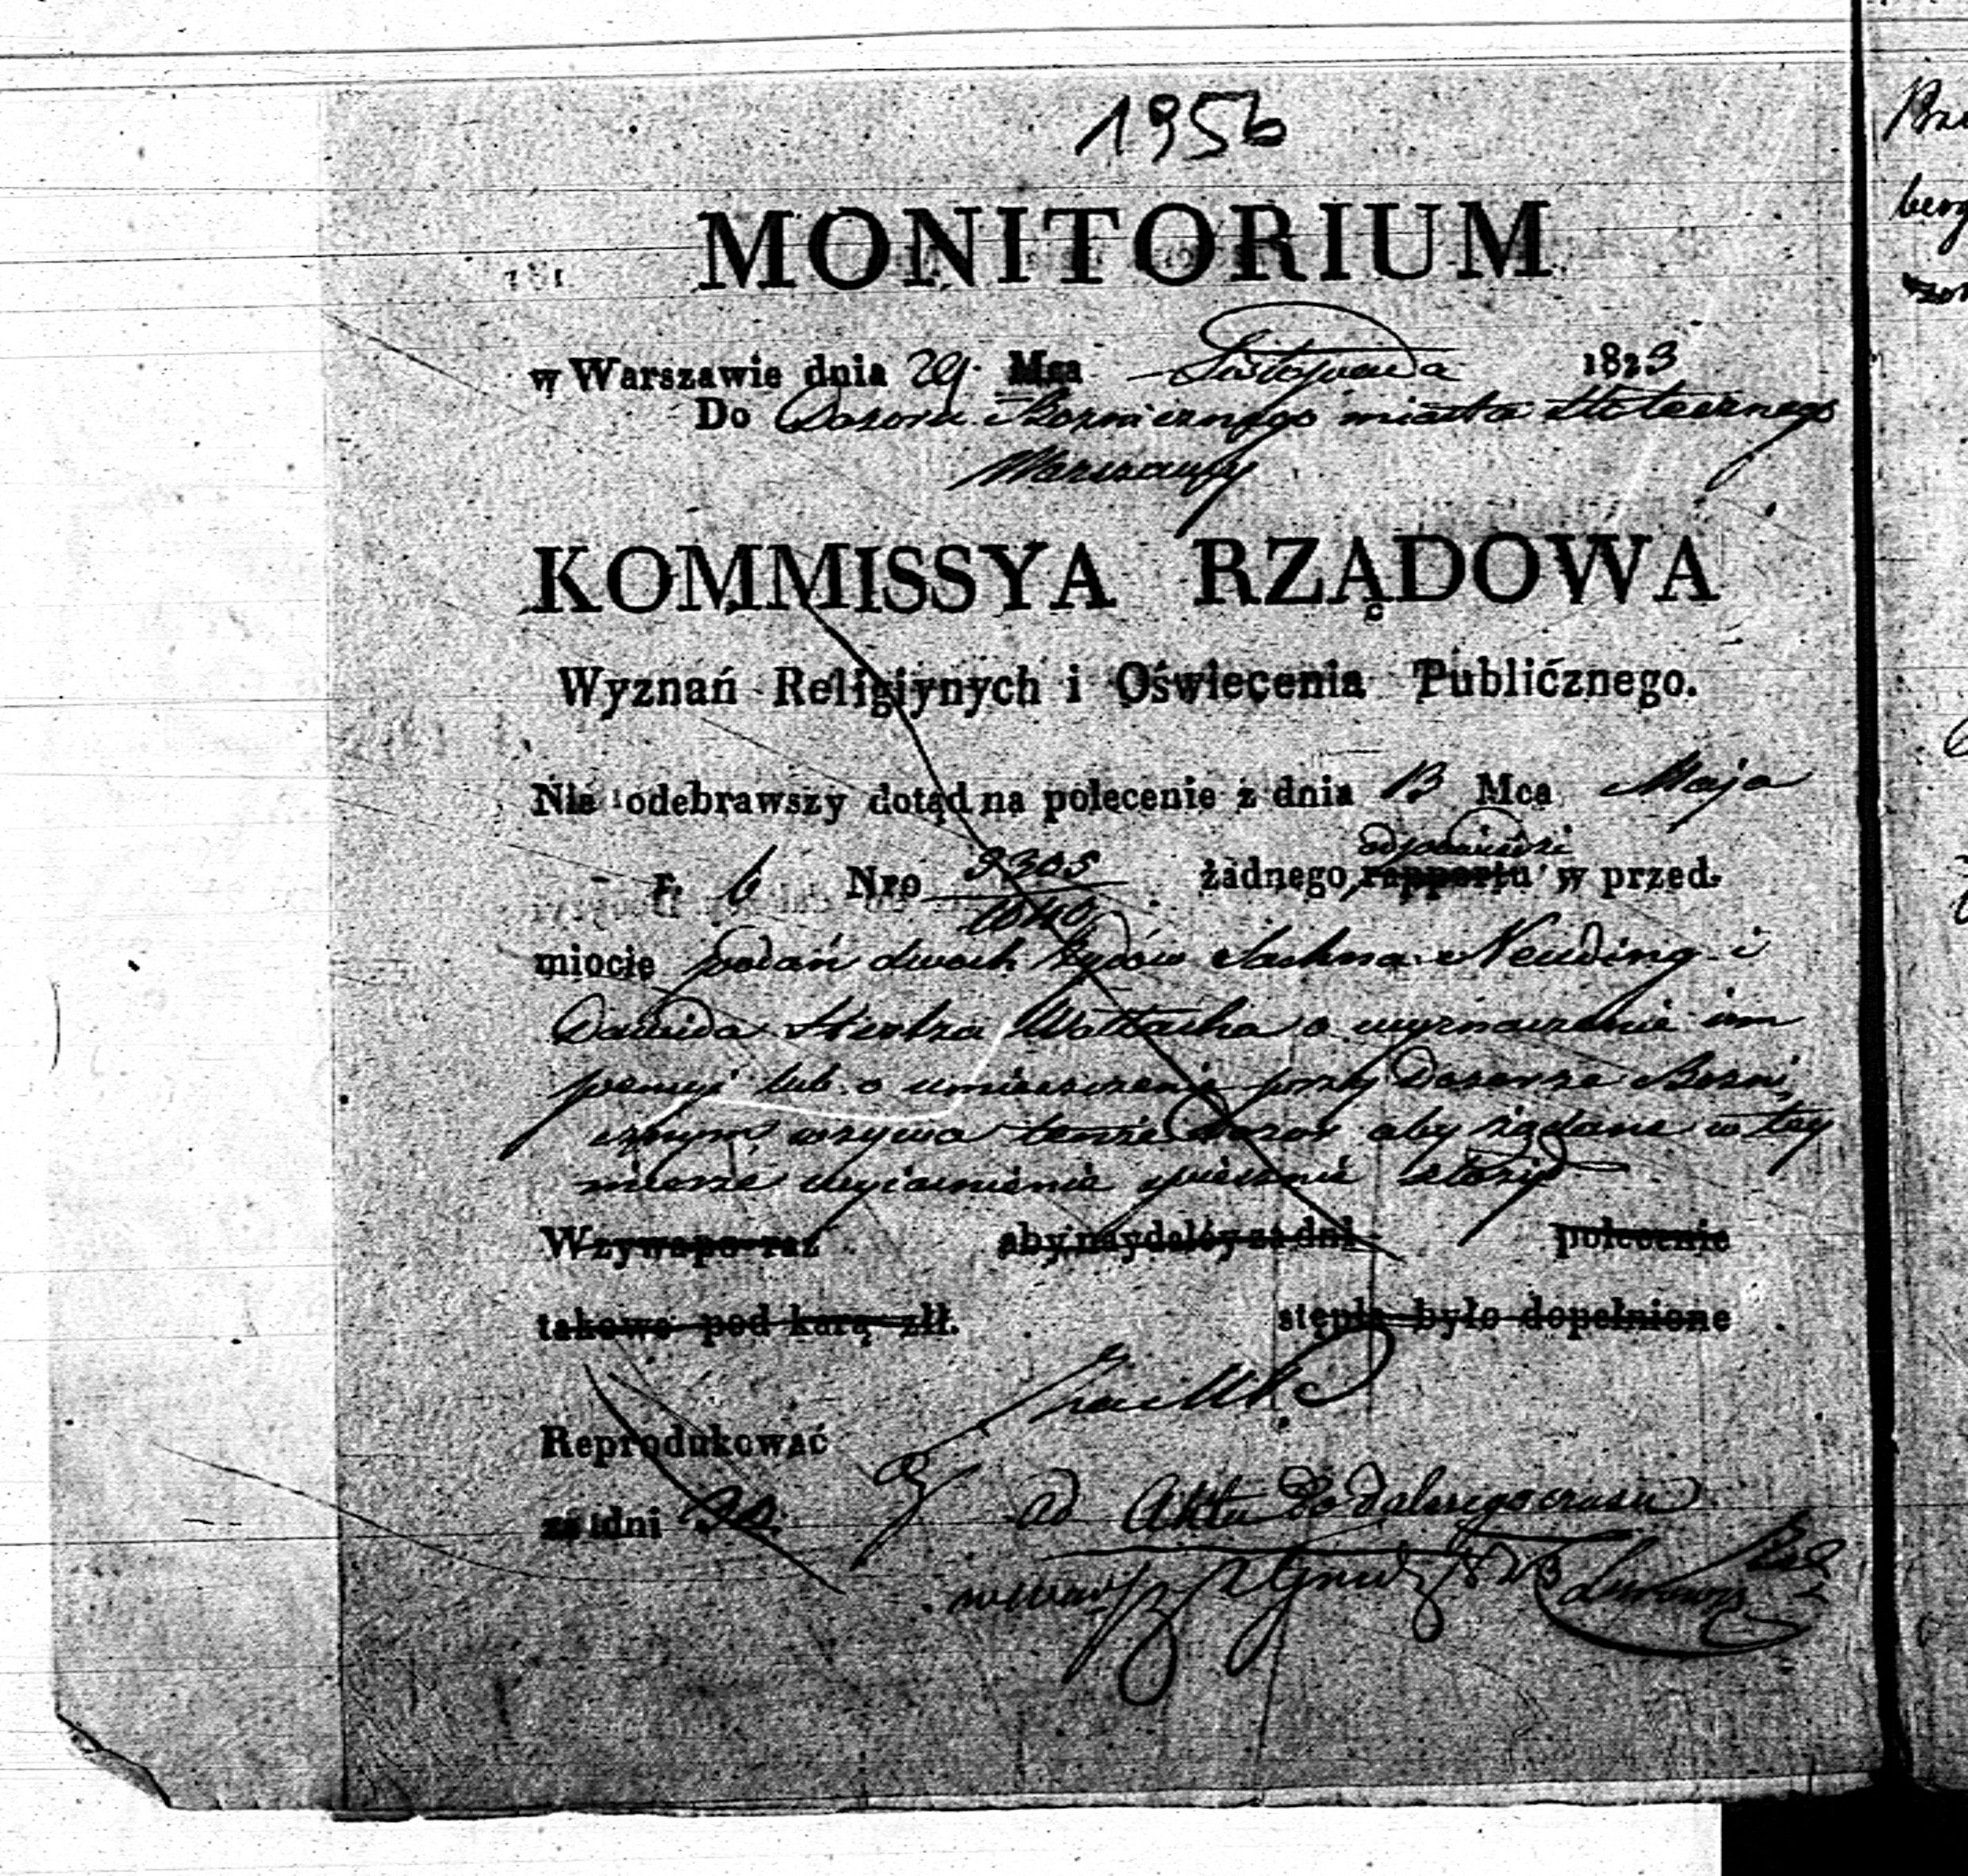 1956
MONITORIUM
w Warszawie dnia 29. Mca Listopada 1823
Do Dozoru Boznicznego miasta Stołecznego
Warszawy
KOMMISSYA RZĄDOWA
Wyznań Religiynych i Oświecenia Publicznego.
Nie odebrawszy dotąd na polecenie z dnia 13 Mca Maja
odpowiedzi
r. b Nro 9305 żadnego rapportu w przed-
1040
miocie podań dwoch Żydów Sachna Neuding i
Dawida Hertza Wallacha o wyznaczenie im
pensyi lub o umieszczenie przy Dozorze Bozni-
cznym wzywa tenże Dozor aby żądane w tey
mierze wyiaśnienie spiesznie złożył
Wzywa po raz aby naydaléy za dni polecenie
takowe pod karą złł. stępla było dopełnione
Reprodukować
za dni 30.
ad Akta do dalszego czasu